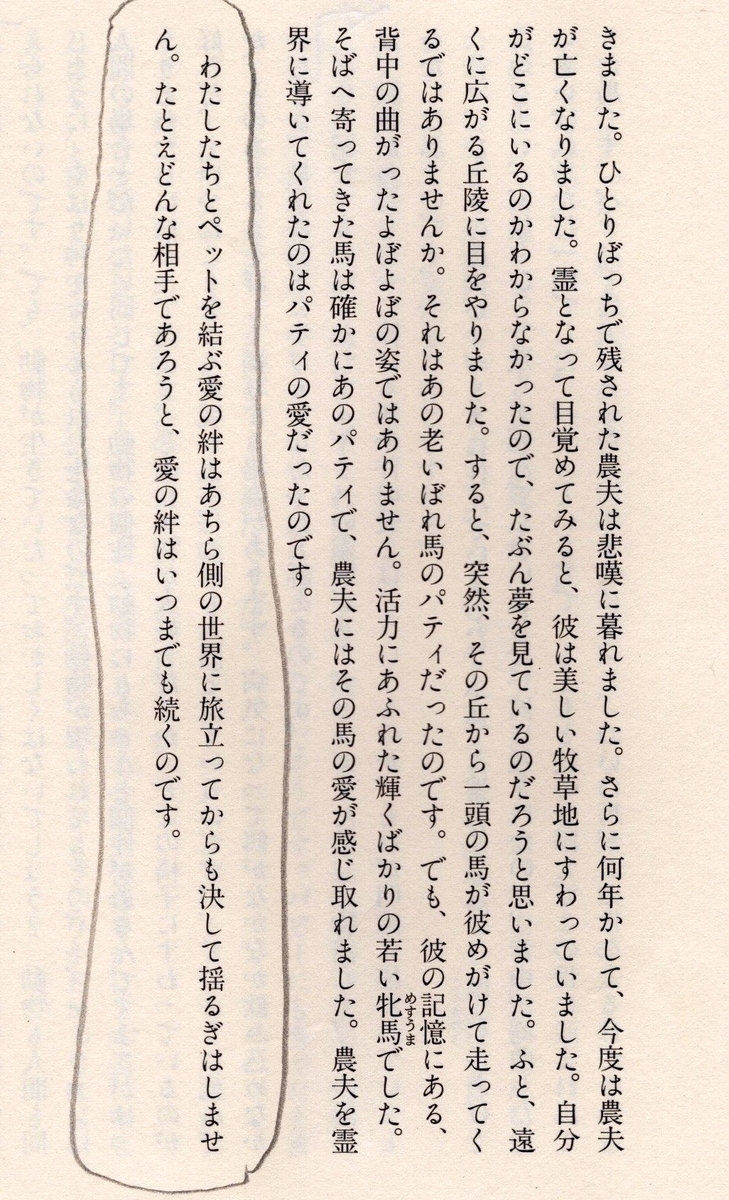 きました。ひとりぼっちで残された農夫は悲嘆に暮れました。さらに何年かして、今度は農夫
が亡くなりました。霊となって目覚めてみると、彼は美しい牧草地にすわっていました。自分
がどこにいるのかわからなかったので、たぶん夢を見ているのだろうと思いました。ふと、遠
くに広がる丘陵に目をやりました。すると、突然、その丘から一頭の馬が彼めがけて走ってく
るではありませんか。それはあの老いぼれ馬のパティだったのです。でも、彼の記憶にある、
背中の曲がったよぼよぼの姿ではありません。活力にあふれた輝くばかりの若い牝馬でした。
めすうま
そばへ寄ってきた馬は確かにあのパティで、農夫にはその馬の愛が感じ取れました。農夫を霊
界に導いてくれたのはパティの愛だったのです。
わたしたちとペットを結ぶ愛の絆はあちら側の世界に旅立ってからも決して揺るぎはしませ
ん。たとえどんな相手であろうと、愛の絆はいつまでも続くのです。